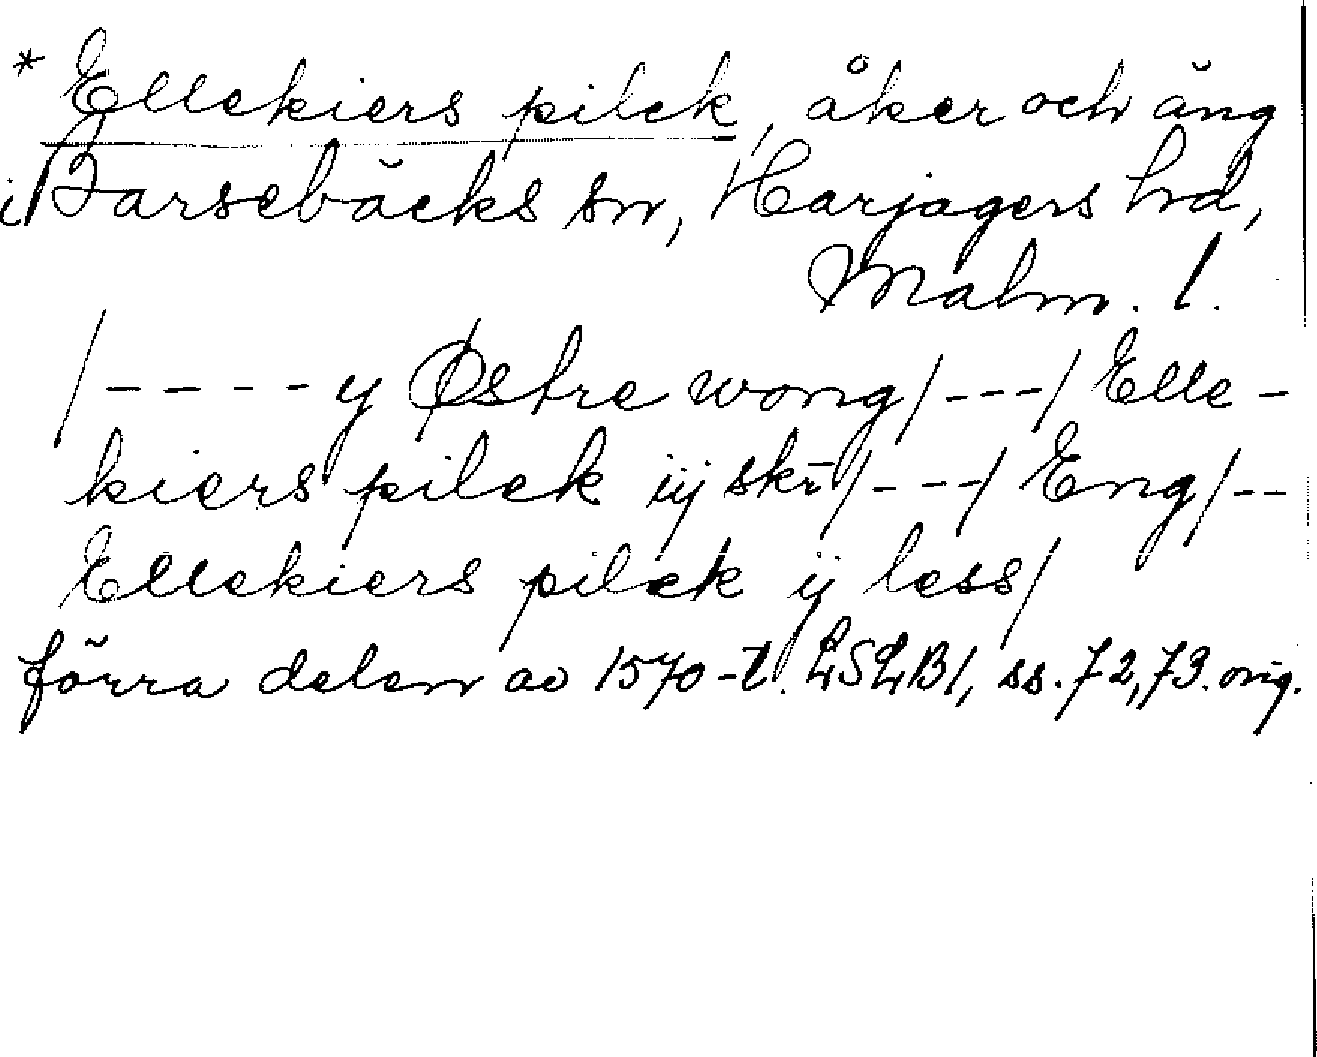 * Ellekiers pilek, åker och äng
i Barsebäcks sn, Harjagers hd,
Malm. l.
/---- y Østre wong/---/ Elle-
kiers pilek iij skr/---/ Eng/--
Ellekiers pilek ij less/
förra delen av 1570-t. LSLB1, ss. 72, 73. orig.